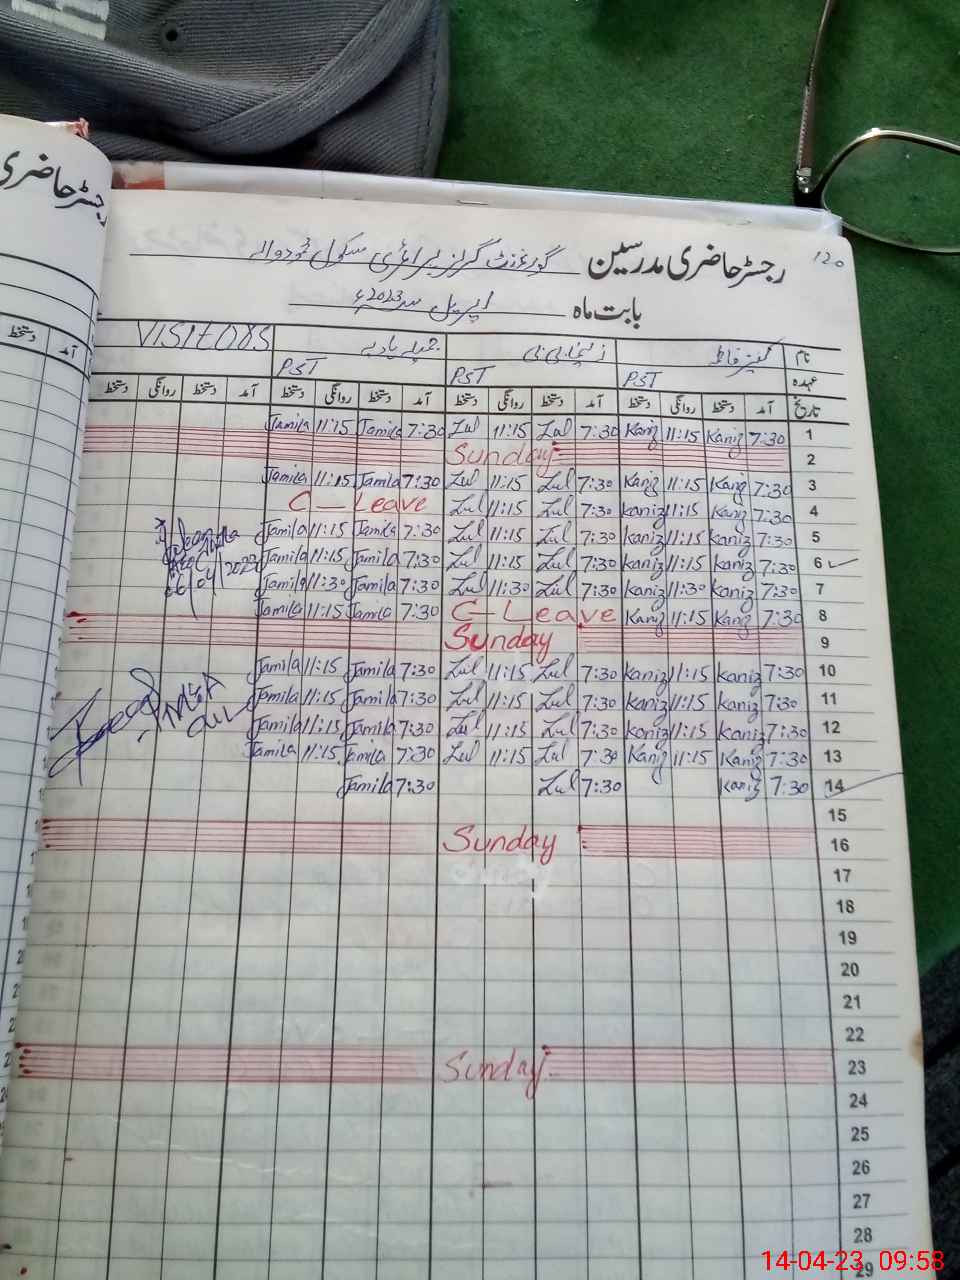 رجسٹر حاضری
آمد دستخط
120
رجسٹر حاضری مدرسین گورنمنٹ گرلز پرائمری سکول
بابت ماہ اپریل 2023ء
نام کنیز فاطمہ VISITORS
عہدہ PST PST PST
تاریخ آمد دستخط روانگی دستخط آمد دستخط روانگی دستخط آمد دستخط روانگی دستخط آمد دستخط روانگی دستخط
Jamila 11:15 Jamila 7:30 Zul 11:15 Zul 7:30 Kaniz 11:15 Kaniz 7:30 1
Sunday 2
Jamila 11:15 Jamila 7:30 Zul 11:15 Zul 7:30 Kaniz 11:15 Kaniz 7:30 3
C-Leave Zul 11:15 Zul 7:30 Kaniz 11:15 Kaniz 7:30 4
Jamila 11:15 Jamila 7:30 Zul 11:15 Zul 7:30 Kaniz 11:15 Kaniz 7:30 5
Jamila 11:15 Jamila 7:30 Zul 11:15 Zul 7:30 Kaniz 11:15 Kaniz 7:30 6
06/04/2023 Jamila 11:30 Jamila 7:30 Zul 11:30 Zul 7:30 Kaniz 11:30 Kaniz 7:30 7
Jamila 11:15 Jamila 7:30 C-Leave Kaniz 11:15 Kaniz 7:30 8
Sunday 9
Jamila 11:15 Jamila 7:30 Zul 11:15 Zul 7:30 Kaniz 11:15 Kaniz 7:30 10
Jamila 11:15 Jamila 7:30 Zul 11:15 Zul 7:30 Kaniz 11:15 Kaniz 7:30 11
Jamila 11:15 Jamila 7:30 Zul 11:15 Zul 7:30 Kaniz 11:15 Kaniz 7:30 12
Jamila 11:15 Jamila 7:30 Zul 11:15 Zul 7:30 Kaniz 11:15 Kaniz 7:30 13
Jamila 7:30 Zul 7:30 Kaniz 7:30 14
15
Sunday 16
17
18
19
20
21
22
Sunday 23
24
25
26
27
28
29
14-04-23, 09:58